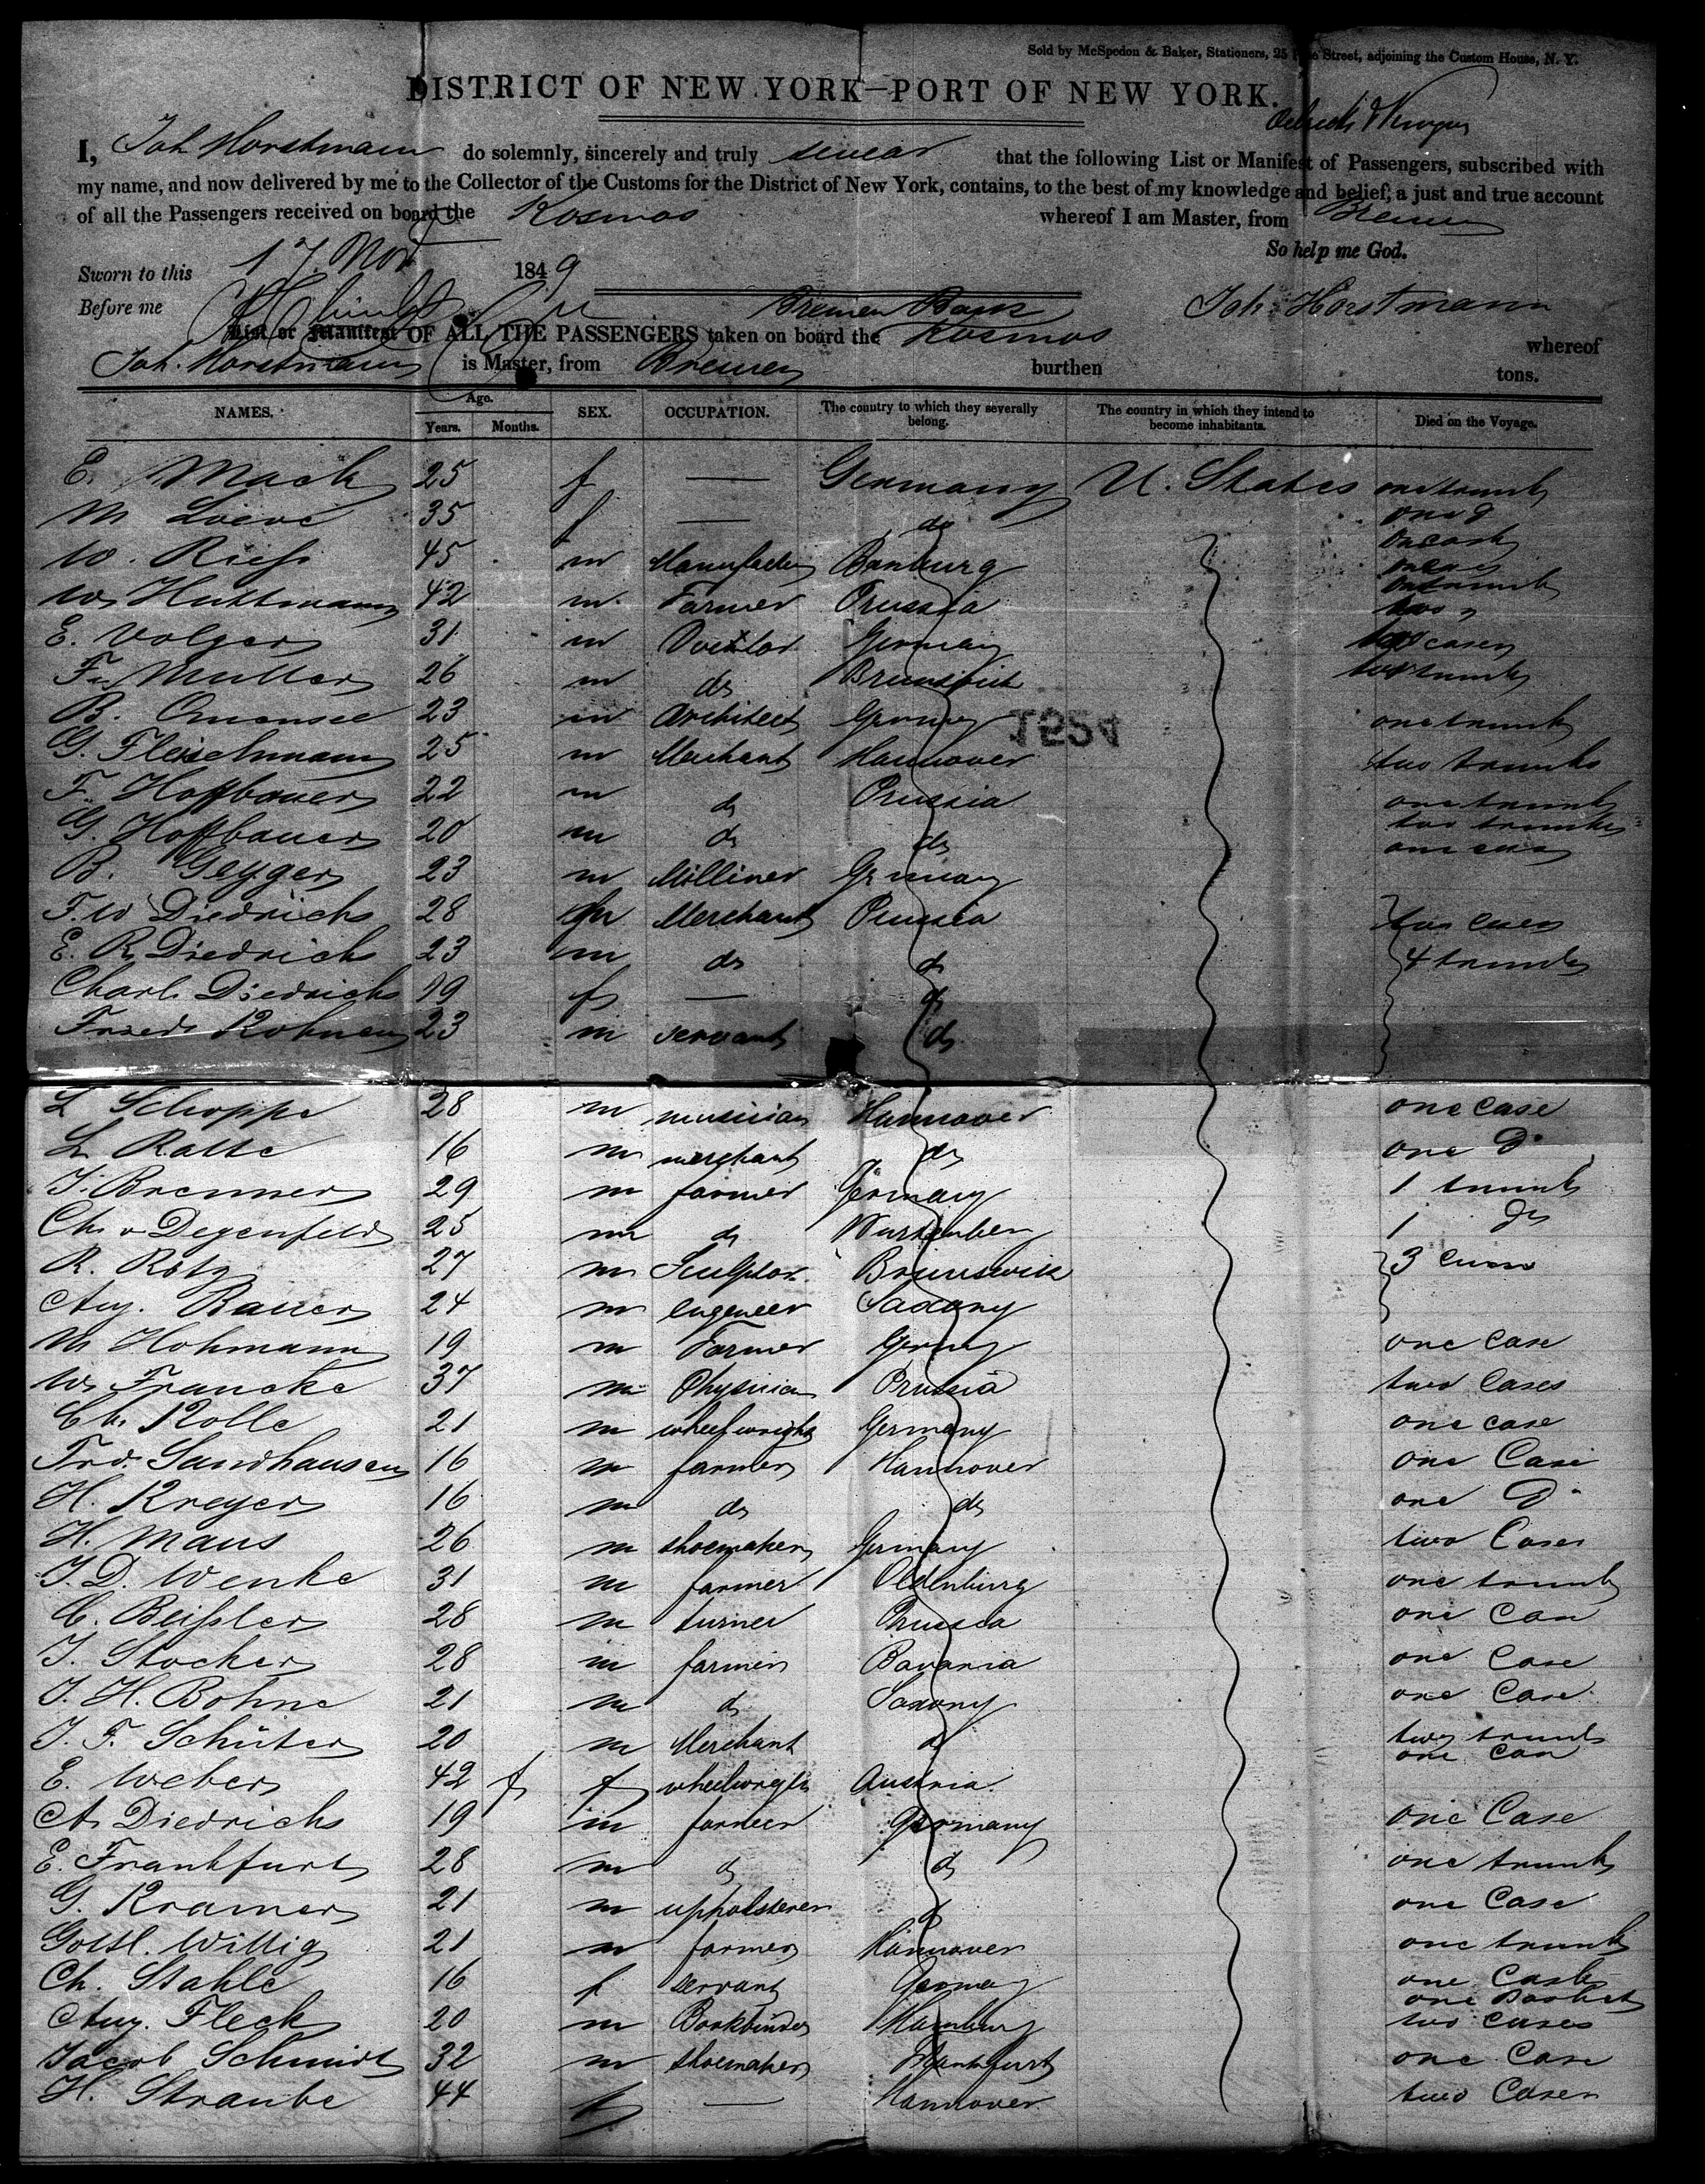 Sold by McSpedon & Baker, Stationers, 25 Street, adjoining the Custom House, N. Y.
DISTRICT OF NEW YORK—PORT OF NEW YORK.
I, Joh Horstmann do solemnly, sincerely and truly swear that the following List or Manifest of Passengers, subscribed with
my name, and now delivered by me to the Collector of the Customs for the District of New York, contains, to the best of my knowledge and belief, a just and true account
of all the Passengers received on board the Kosmos whereof I am Master, from Bremen
So help me God.
Sworn to this 17. Nov 1849
Before me Joh. Horstmann
List or Manifest OF ALL THE PASSENGERS taken on board the Bremen Bark Kosmos whereof
Joh. Horstmann is Master, from Bremen burthen tons.
NAMES. Age. Years. Months. SEX. OCCUPATION. The country to which they severally belong. The country in which they intend to become inhabitants. Died on the Voyage.
E. Mack 25 f — Germany U. States one trunk
M Loeve 35 f — do one d
W. Riess 45 m Manufactur one cask
W. Huttmann 42 m Farmer Prussia one trunk
E. Volger 31 m Doctor Germany two cases
F. Muller 26 m do Brunswick two trunks
B. 23 m Architect Germany one trunk
G. Fleischmann 25 m Merchant Hannover two trunks
F. Hoffbauer 22 m do Prussia one trunk
G. Hoffbauer 20 m do do two trunks
B. Geyger 23 m Milliner Germany one case
F. W Diedrichs 28 m Merchant Prussia two cases
E. R. Diedrichs 23 m do do 4 trunks
Charl. Diedrichs 19 f — do
Fried. Rohnen 23 m servant do
L Schoppe 28 m musician Hannover one case
L. Ratte 16 m merchant do one Do
J. Brenner 29 m farmer Germany 1 trunk
Ch. v Degenfeld 25 m do Wurtenberg 1 do
R. Rotz 27 m Sculptor Brunswick 3 cases
Aug. Bauer 24 m engeneer Saxony
M Hohmann 19 m Farmer Germy one case
W. Francke 37 m Physician Prussia two Cases
Ch. Rolle 21 m wheelwright Germany one case
Frd. Sandhausen 16 m farmer Hannover one Case
H. Kreyer 16 m do do one Do
H. Maus 26 m shoemaker Germany two Cases
J. D. Wenke 31 m farmer Oldenburg one trunk
C. Beissler 28 m turner Prussia one Case
J. Stocker 28 m farmer Bavaria one Case
J. H. Bohne 21 m do Saxony one Case
J. F. Schüter 20 m Merchant do two trunks
one Case
E. Weber 42 f f wheelwright Austria
A. Diedrichs 19 m farmer Germany one Case
E. Frankfurt 28 m do do one trunk
G. Kramer 21 m upholsterer do one Case
Gottl. Willig 21 m farmer Hannover one trunk
Ch. Stahle 16 f servant Germany one Cask
one Basket
Aug. Fleck 20 m Bookbinder Hamburg two cases
Jacob Schmidt 32 m shoemaker Frankfurt one Case
H. Straube 44 f — Hannover two Cases